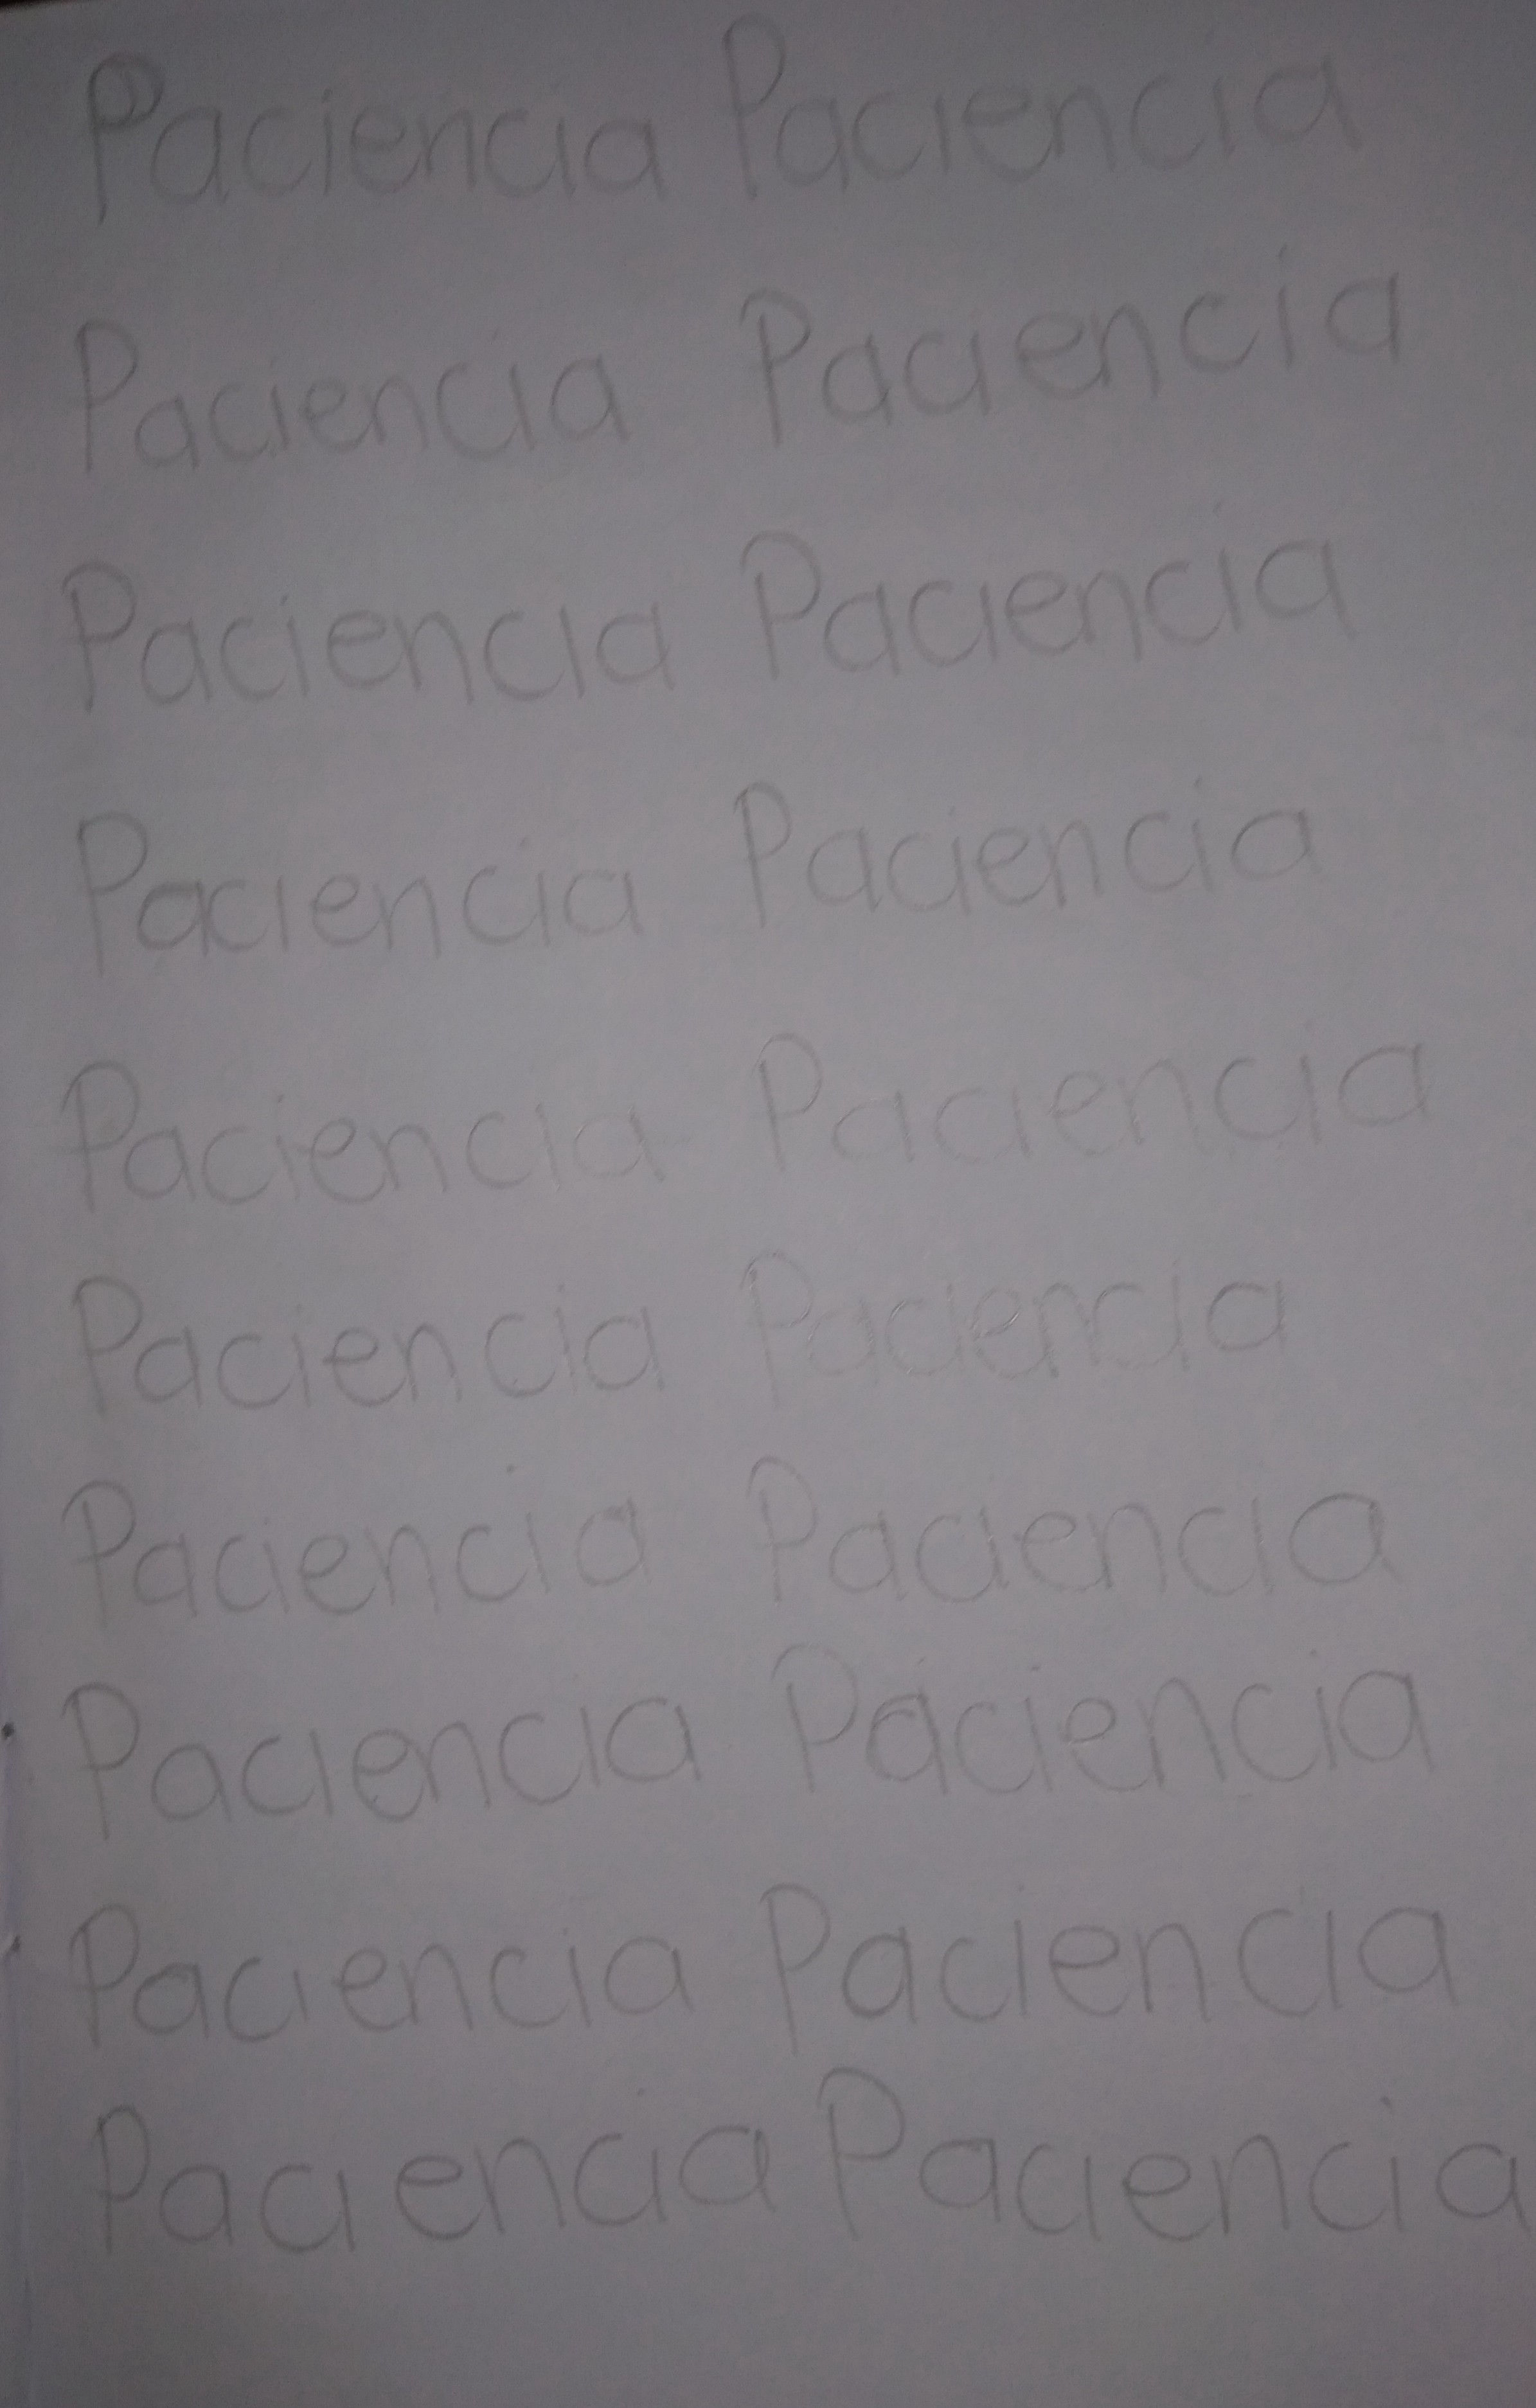 Paciencia Paciencia
Paciencia Paciencia
Paciencia Paciencia
Paciencia Paciencia
Paciencia Paciencia
Paciencia Paciencia
Paciencia Paciencia
Paciencia Paciencia
Paciencia Paciencia
Paciencia Paciencia